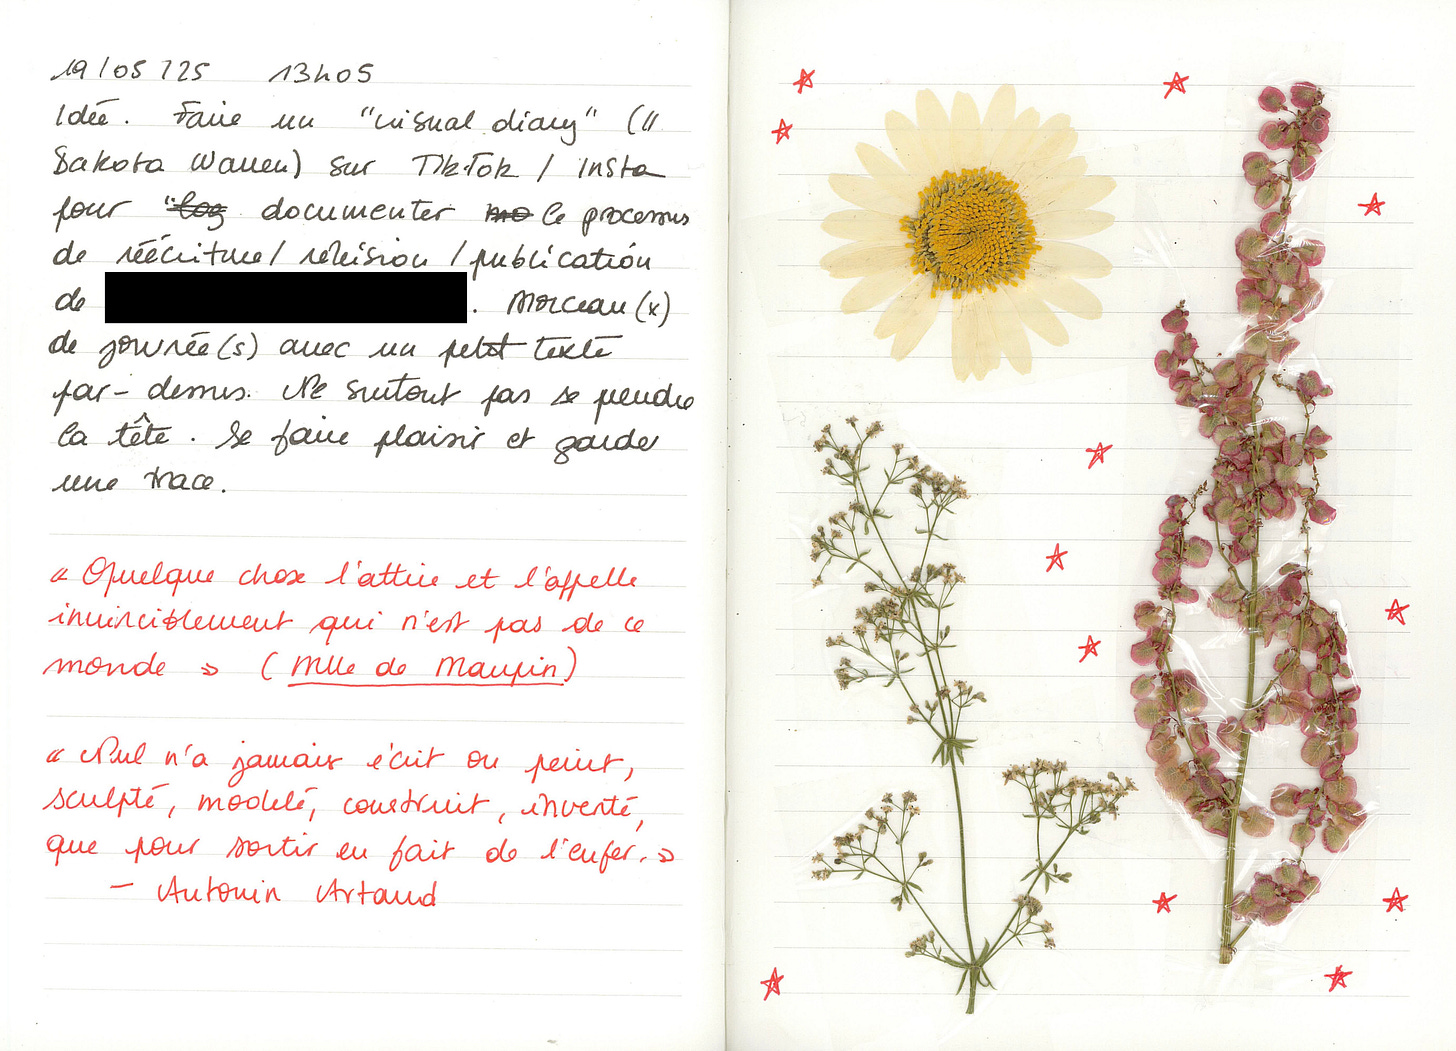 19/05/25 13h05
Idée. Faire un "visual diary" (//
Dakota Warren) sur TikTok / Insta
pour "log documenter mo le processus
de réécriture / révision / publication
de . Morceau(x)
de journée(s) avec un petit texte
par-dessus. Ne surtout pas se prendre
la tête. Se faire plaisir et garder
une trace.
« Quelque chose l'attire et l'appelle
invinciblement qui n'est pas de ce
monde » (Mlle de Maupin)
« Nul n'a jamais écrit ou peint,
sculpté, modelé, construit, inventé,
que pour sortir en fait de l'enfer. »
— Antonin Artaud